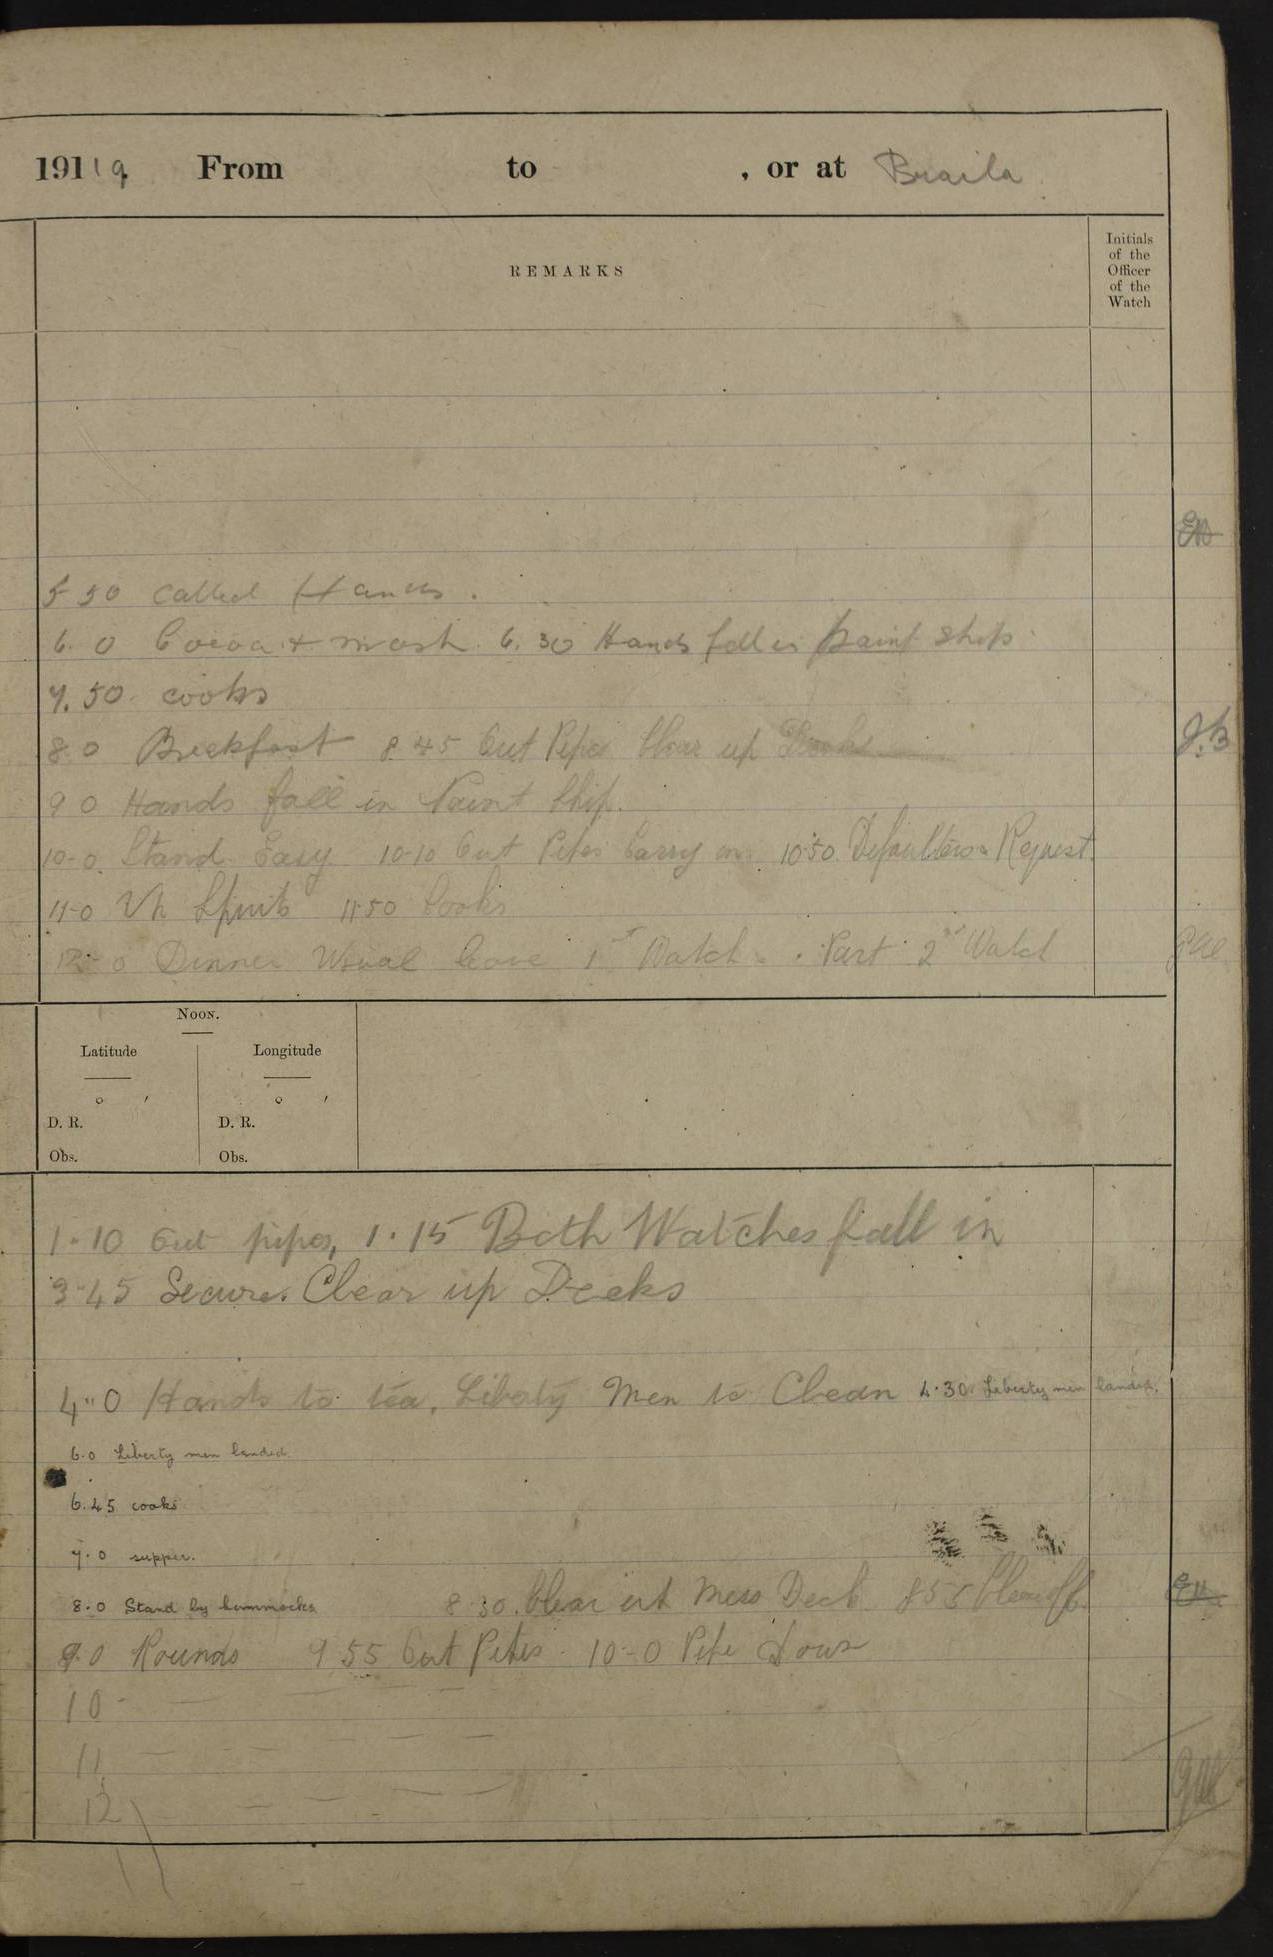 19119 From to , or at Braila
REMARKS
Initials
of the
Officer
of the
Watch
5 50 Called Hands.
6. 0 Cocoa & wash. 6.30 Hands fall in paint ship
7.50. cooks
8.0 Breekfast 8.45 Out Pipes Clear up Decks
9 0 Hands fall in Paint Ship.
10-0. Stand Easy 10-10 Out Pipes Carry on 10.50. Defaulters & Request.
11-0 Up Spirits 11.50 Cooks
12-0 Dinner Usual leave 1st Watch & Part 2nd Watch
J.B
NOON.
Latitude Longitude
° ′ ° ′
D. R. D. R.
Obs. Obs.
1.10 Out pipes, 1.15 Both Watches fall in
3-45 Secure. Clear up Decks
4"0 Hands to tea, Liberty Men to Clean 4.30. Liberty men landed.
6.0 Liberty men landed.
6.45 cooks
7.0 supper.
8.0 Stand by hammocks 8.30. Clear up Mess Deck 855 Clear off.
9.0 Rounds 9 55 Out Pipes. 10-0 Pipe Down
10 -
11
12